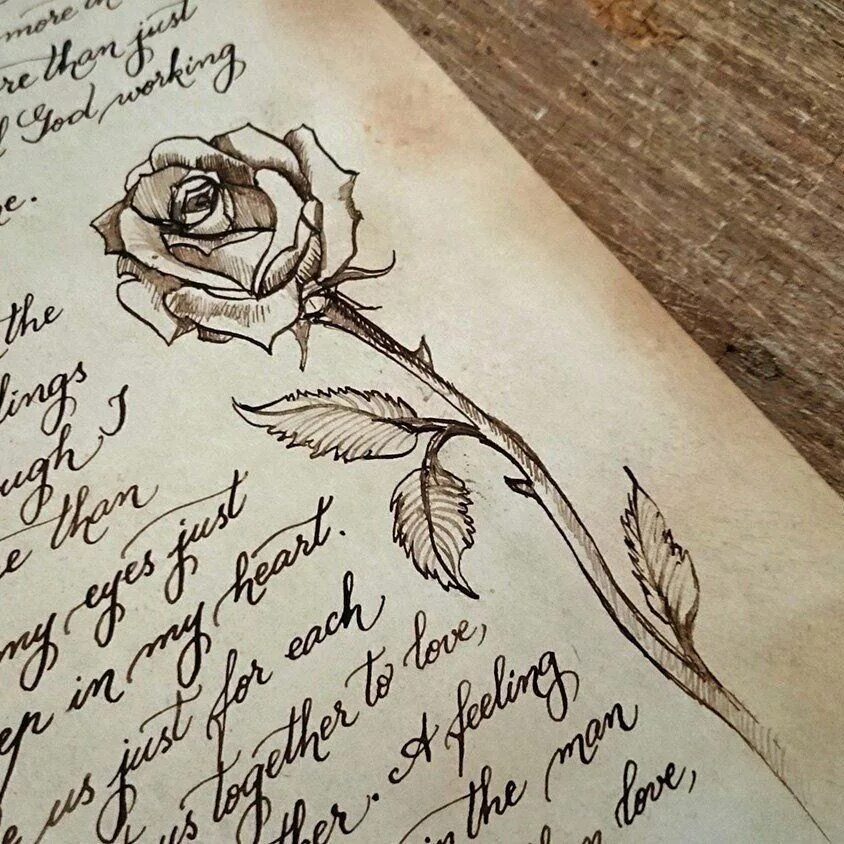 more in
than just
God working
the
I
than
my eyes just
in my heart.
us just for each
us together to love,
. A feeling
in the man
love,